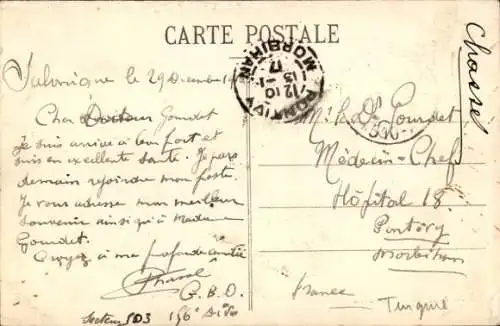 CARTE POSTALE
Salonique le 29 Décembre 19
Cher Docteur Gourdet
Je suis arrivé à bon port et
suis en excellente santé. Je pars
demain rejoindre mon poste.
Je vous adresse mon meilleur
souvenir ainsi qu'à Madame
Gourdet.
Croyez à ma profonde amitié
G.B.D.
Secteur 503 156e Div
PONTIVY
12 10
13-1
17
MORBIHAN
Mr le Dr Gourdet
Médecin-Chef
Hôpital 18.
Pontivy
Morbihan
France
Turquie
Chasse